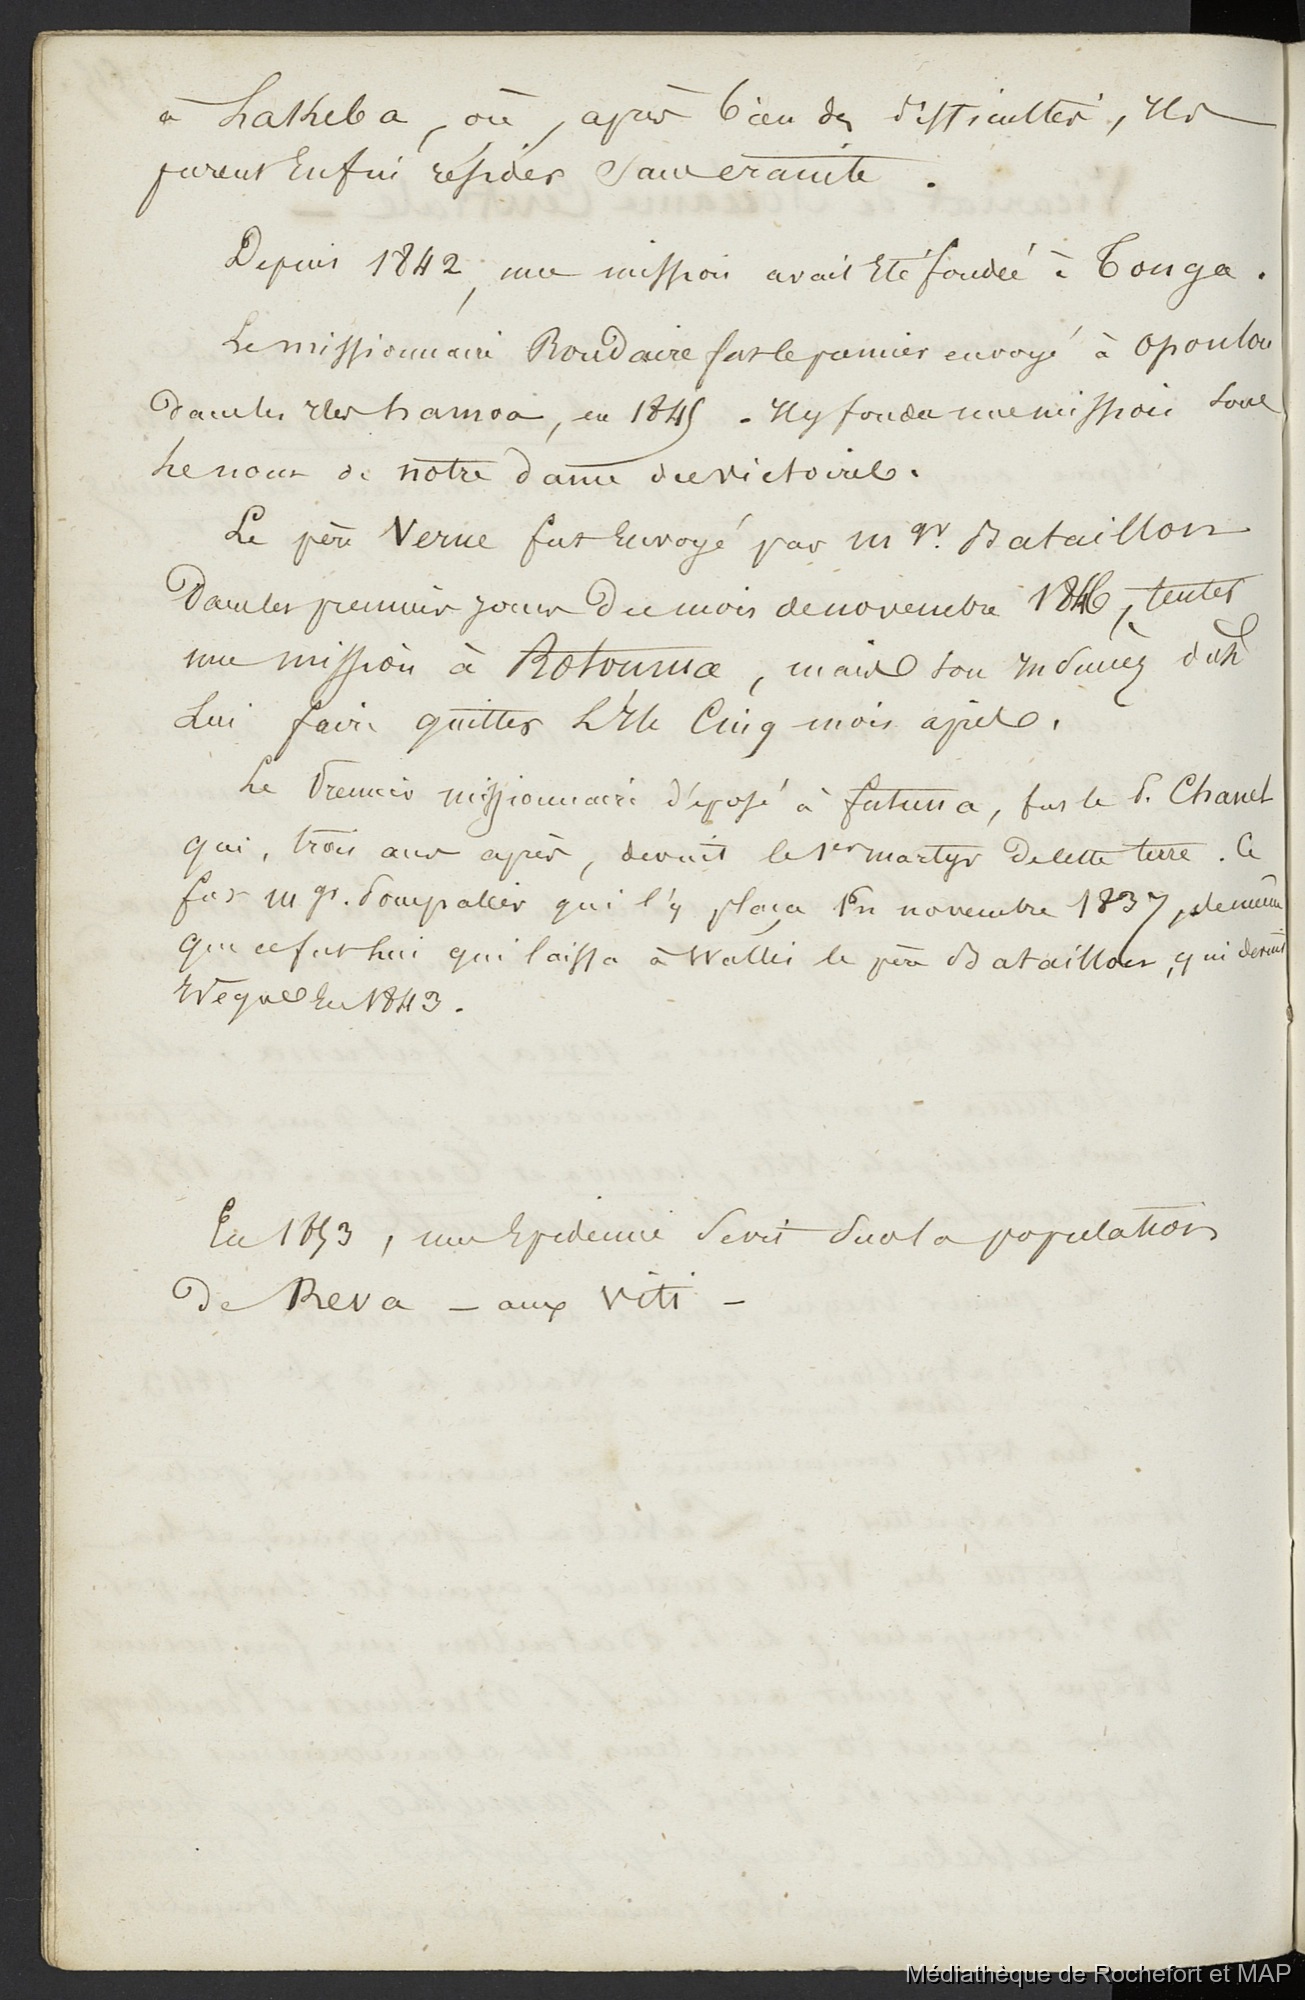 à Lakheba, où, après bien des difficultés, ils
purent enfin résider sans crainte.
Depuis 1842, une mission avait été fondée à Tonga.
Le missionnaire Roudaire fut le premier envoyé à Opoulou
dans les iles hamoa, en 1845. Il y fonda une mission sous
le nom de notre dame des victoires.
Le père Verne fut envoyé par mgr. Bataillon
dans les premiers jours du mois de novembre 1846, tenter
une mission à Rotouma, mais son insuccès dut
lui faire quitter l'ile cinq mois après.
Le Premier missionnaire déposé à futuna, fut le P. Chanel
qui, trois ans après, devint le 1er martyr de cette terre. Ce
fut mgr. Pompallier qui l'y plaça En novembre 1837, de même
que ce fut lui qui laissa à Wallis le père Bataillon, qui devint
Evêque En 1843.
En 1853, une Epidemie sevit sur la population
de Reva - aux Viti -
Médiathèque de Rochefort et MAP